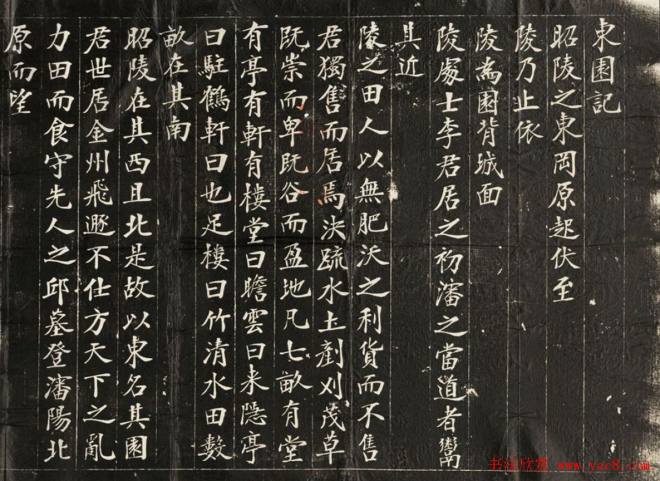 東園記
昭陵之東岡原起伏至
陵乃止依
陵為園背城面
陵處士李君居之初瀋之當道者鬻
其近
陵之田人以無肥沃之利貨而不售
君獨售而居焉決疏水土剷刈茂草
既崇而卑既谷而盈地凡七畝有堂
有亭有軒有樓堂曰瞻雲曰来隱亭
曰駐鶴軒曰也足樓曰竹清水田數
畝在其南
昭陵在其西且北是故以東名其園
君世居金州飛遯不仕方天下之亂
力田而食守先人之邱墓登瀋陽北
原而望
书法欣赏 www.yac8.com